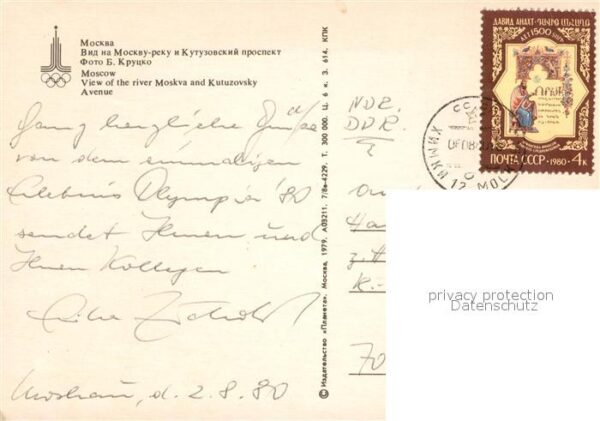 Москва
Вид на Москву-реку и Кутузовский проспект
Фото Б. Круцко
Moscow
View of the river Moskva and Kutuzovsky
Avenue
Ganz herzliche Grüße
von dem einmaligen
Erlebnis Olympia '80
sendet Ihnen und
Ihren Kollegen
Moskau, d. 2.8.80
© Издательство «Планета». Москва, 1979. А03211. 7/8в-4229. Т. 300 000. Ц. 6 к. З. 614. КПК
DDR
70
ДАВИД АНАХТ
ЛЕТ 1500
ПОЧТА СССР · 1980 · 4к
ХИМКИ
privacy protection
Datenschutz